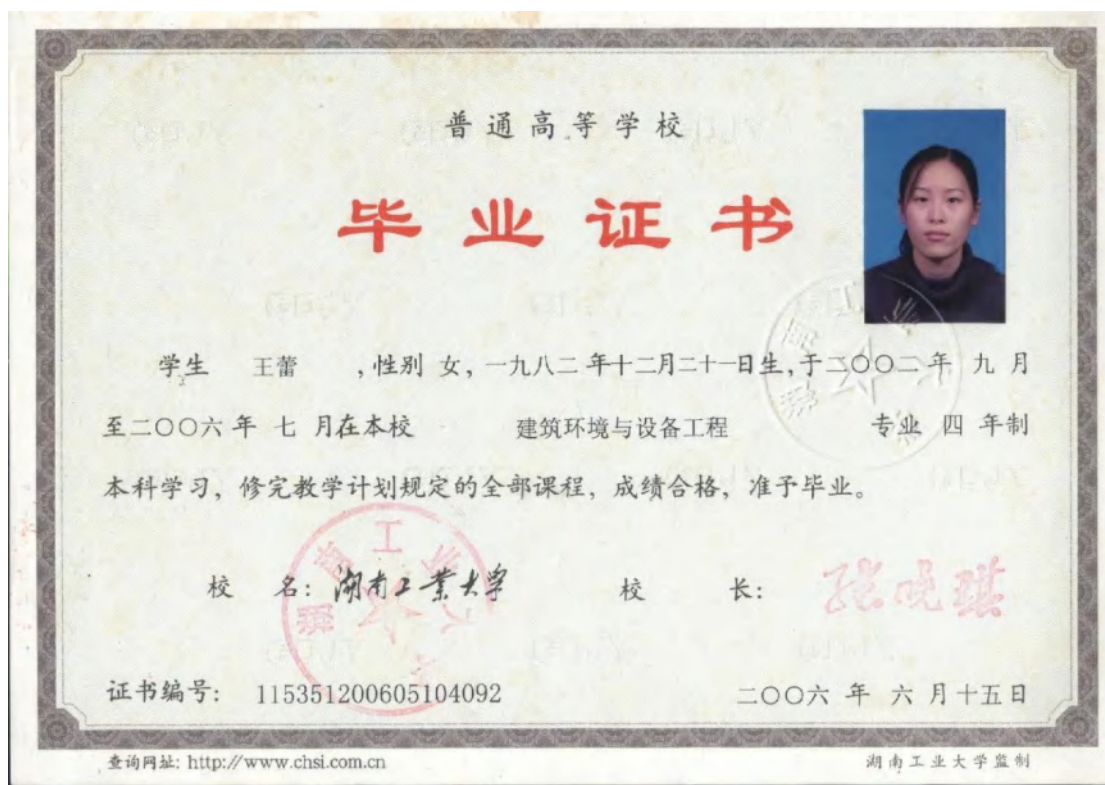 普通高等学校
毕业证书
学生 王蕾 ,性别 女, 一九八二年十二月二十一日生,于二〇〇二年 九 月
至二〇〇六年 七 月在本校 建筑环境与设备工程 专业 四 年制
本科学习, 修完教学计划规定的全部课程, 成绩合格, 准予毕业。
校 名: 湖南工業大学 校 长: 张晓琪
湖南工业大学
湖南工业大学
证书编号: 115351200605104092 二〇〇六 年 六 月十五日
查询网址: http://www.chsi.com.cn 湖南工业大学监制